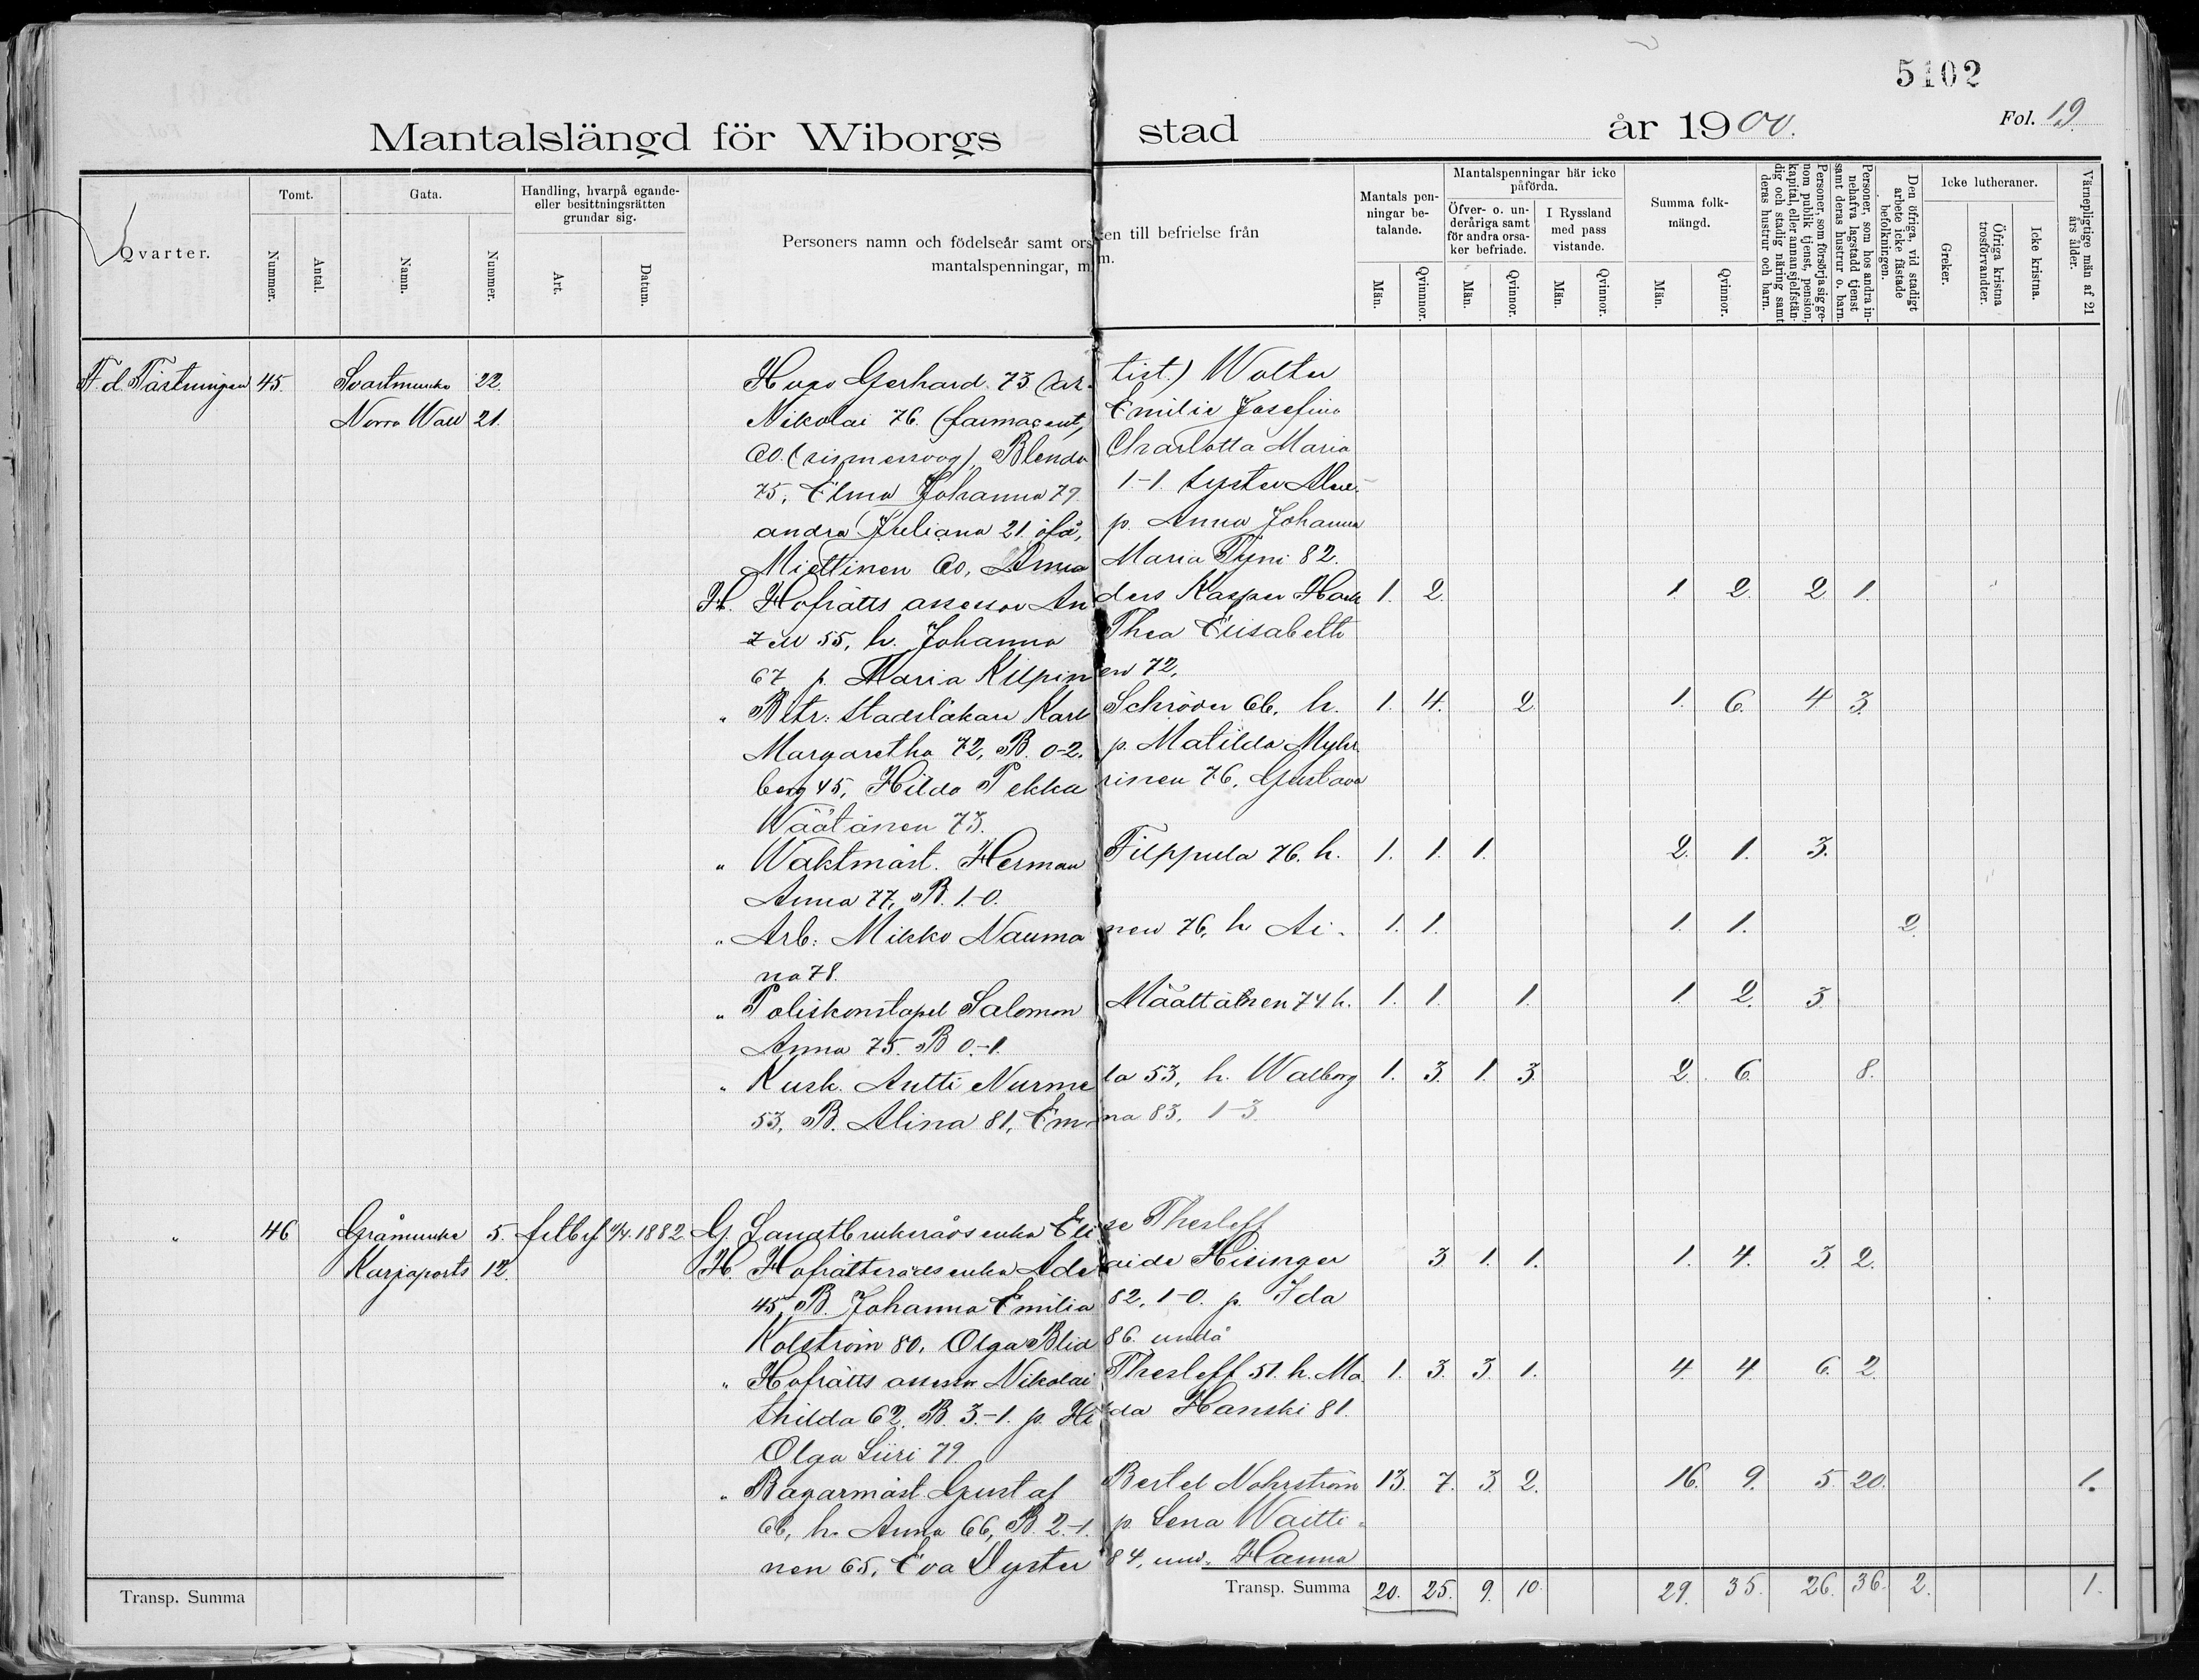 5102
Fol. 19.
Mantalslängd för Wiborgs stad år 1900.
Qvarter.
Tomt.
Nummer.
Antal.
Gata.
Namn.
Nummer.
Handling, hvarpå egande- eller besittningsrätten grundar sig.
Art.
Datum.
Personers namn och födelseår samt ors en till befrielse från
mantalspenningar, m. m.
Mantals penningar betalande.
Män.
Qvinnor.
Mantalspenningar här icke påförda.
Öfver- o. underåriga samt för andra orsaker befriade.
Män.
Qvinnor.
I Ryssland med pass vistande.
Män.
Qvinnor.
Summa folkmängd.
Män.
Qvinnor.
Personer, som försörja sig genom publik tjenst, pension, kapital, eller annan sjelfständig och stadig näring samt deras hustrur och barn.
Personer, som hos andra innehafva lagstadd tjenst samt deras hustrur o. barn.
Den öfriga, vid stadigt arbete icke fästade befolkningen.
Icke lutheraner.
Greker.
Öfriga kristna trosförvandter.
Icke kristna.
Värnepligtige män af 21 års ålder.
F.d. Fästningen 45. Svartmunke 22. Hugo Gerhard 73 (artist.) Wolter
Norra Wall 21. Nikolai 76. (farmaceut, Emilie Josefina
60. Blenda Charlotta Maria
75, Elma Johanna 79. 1-1. syster Alex-
andra Juliana 21. öfå, p. Anna Johanna
Miettinen 60, Anna Maria Tyni 82.
H. Hofrätts assessor Anders Kasper Hack 1. 2. 1. 2. 2. 1.
zell 55, h. Johanna Thea Elisabeth
67 p. Maria Kilpinen 72,
" Bitr: stadsläkare Karl Schröder 66, h. 1. 4. 2. 1. 6. 4 3.
Margaretha 72, B. 0-2. p. Matilda Myhr
berg 45, Hilda Pekkarinen 76, Gustava
Wäätänen 73.
" Waktmäst. Herman Filppula 76. h. 1. 1. 1. 2. 1. 3.
Anna 77, B. 1-0.
" Arb: Mikko Naumanen 76, h. Ai- 1. 1. 1. 1. 2.
na 78.
" Poliskonstapel Salomon Määttänen 74 h. 1. 1. 1. 1. 2. 3.
Anna 75. B 0-1.
" Kusk. Antti Nurmela 53, h. Walborg 1. 3. 1. 3. 2. 6. 8.
53, B. Alina 81, Emma 83, 1-3.
" 46 Gråmunke 5. fstbf. 11/4. 1882. G. Landtbruksråds enka Elise Thesleff
Karjaports 12. H. Hofrättsråds enka Adelaide Hisinger 3. 1. 1. 1. 4. 3. 2.
45, B. Johanna Emilia 82, 1-0. p. Ida
Kolström 80, Olga Blid 86. undå
" Hofrätts assessor Nikolai Thesleff 51. h. Ma 1. 3. 3. 1. 4. 4. 6. 2.
thilda 62, B. 3.-1. p. Hilda Hanski 81.
Olga Siiri 79.
" Bagarmäst. Gustaf Bertel Nohrström 13. 7. 3. 2. 16. 9. 5. 20. 1.
66, h. Anna 66, B. 2-1. p. Lena Waitti-
nen 65, Eva Dyster 84, und. Hanna
Transp. Summa Transp. Summa 20. 25. 9. 10. 29. 35. 26. 36. 2. 1.